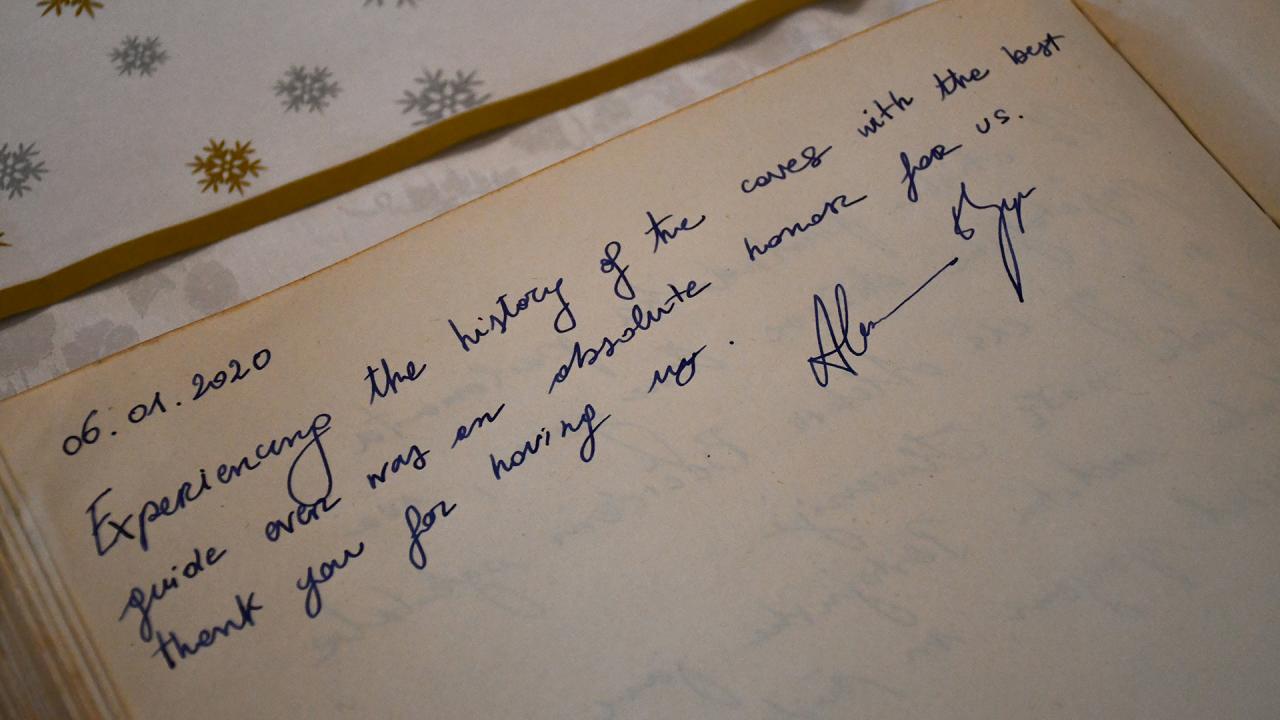 06.01.2020
Experiencing the history of the caves with the best
guide ever was an absolute honor for us.
thank you for having us.